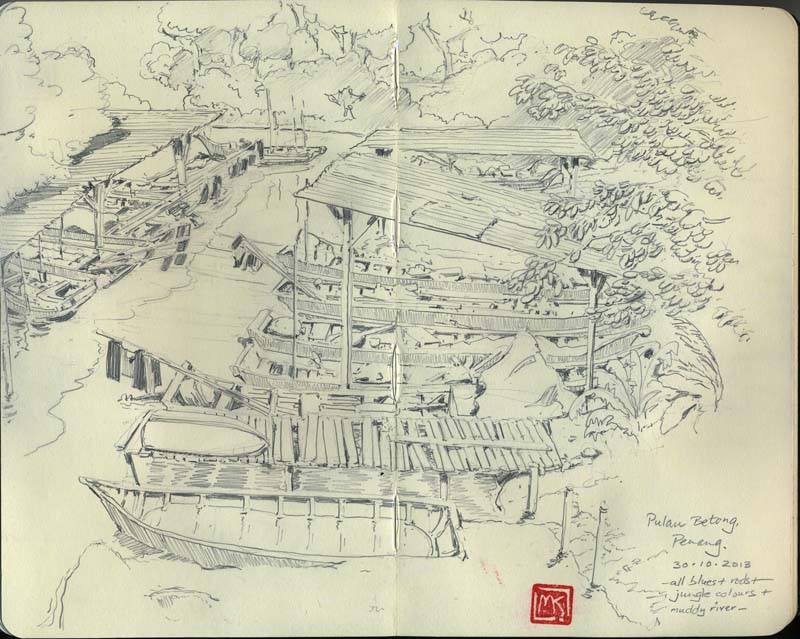 Pulau Betong,
Penang.
30.10.2013
-all blues + reds +
jungle colours +
muddy river-
MK